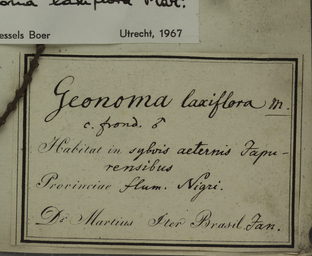 laxiflora Mar.
essels Boer Utrecht, 1967
Geonoma laxiflora m.
c. frond. ♂
Habitat in sylvis aeternis Japu-
rensibus
Provinciae flum. Nigri.
Dr Martius Iter Brasil. Jan.